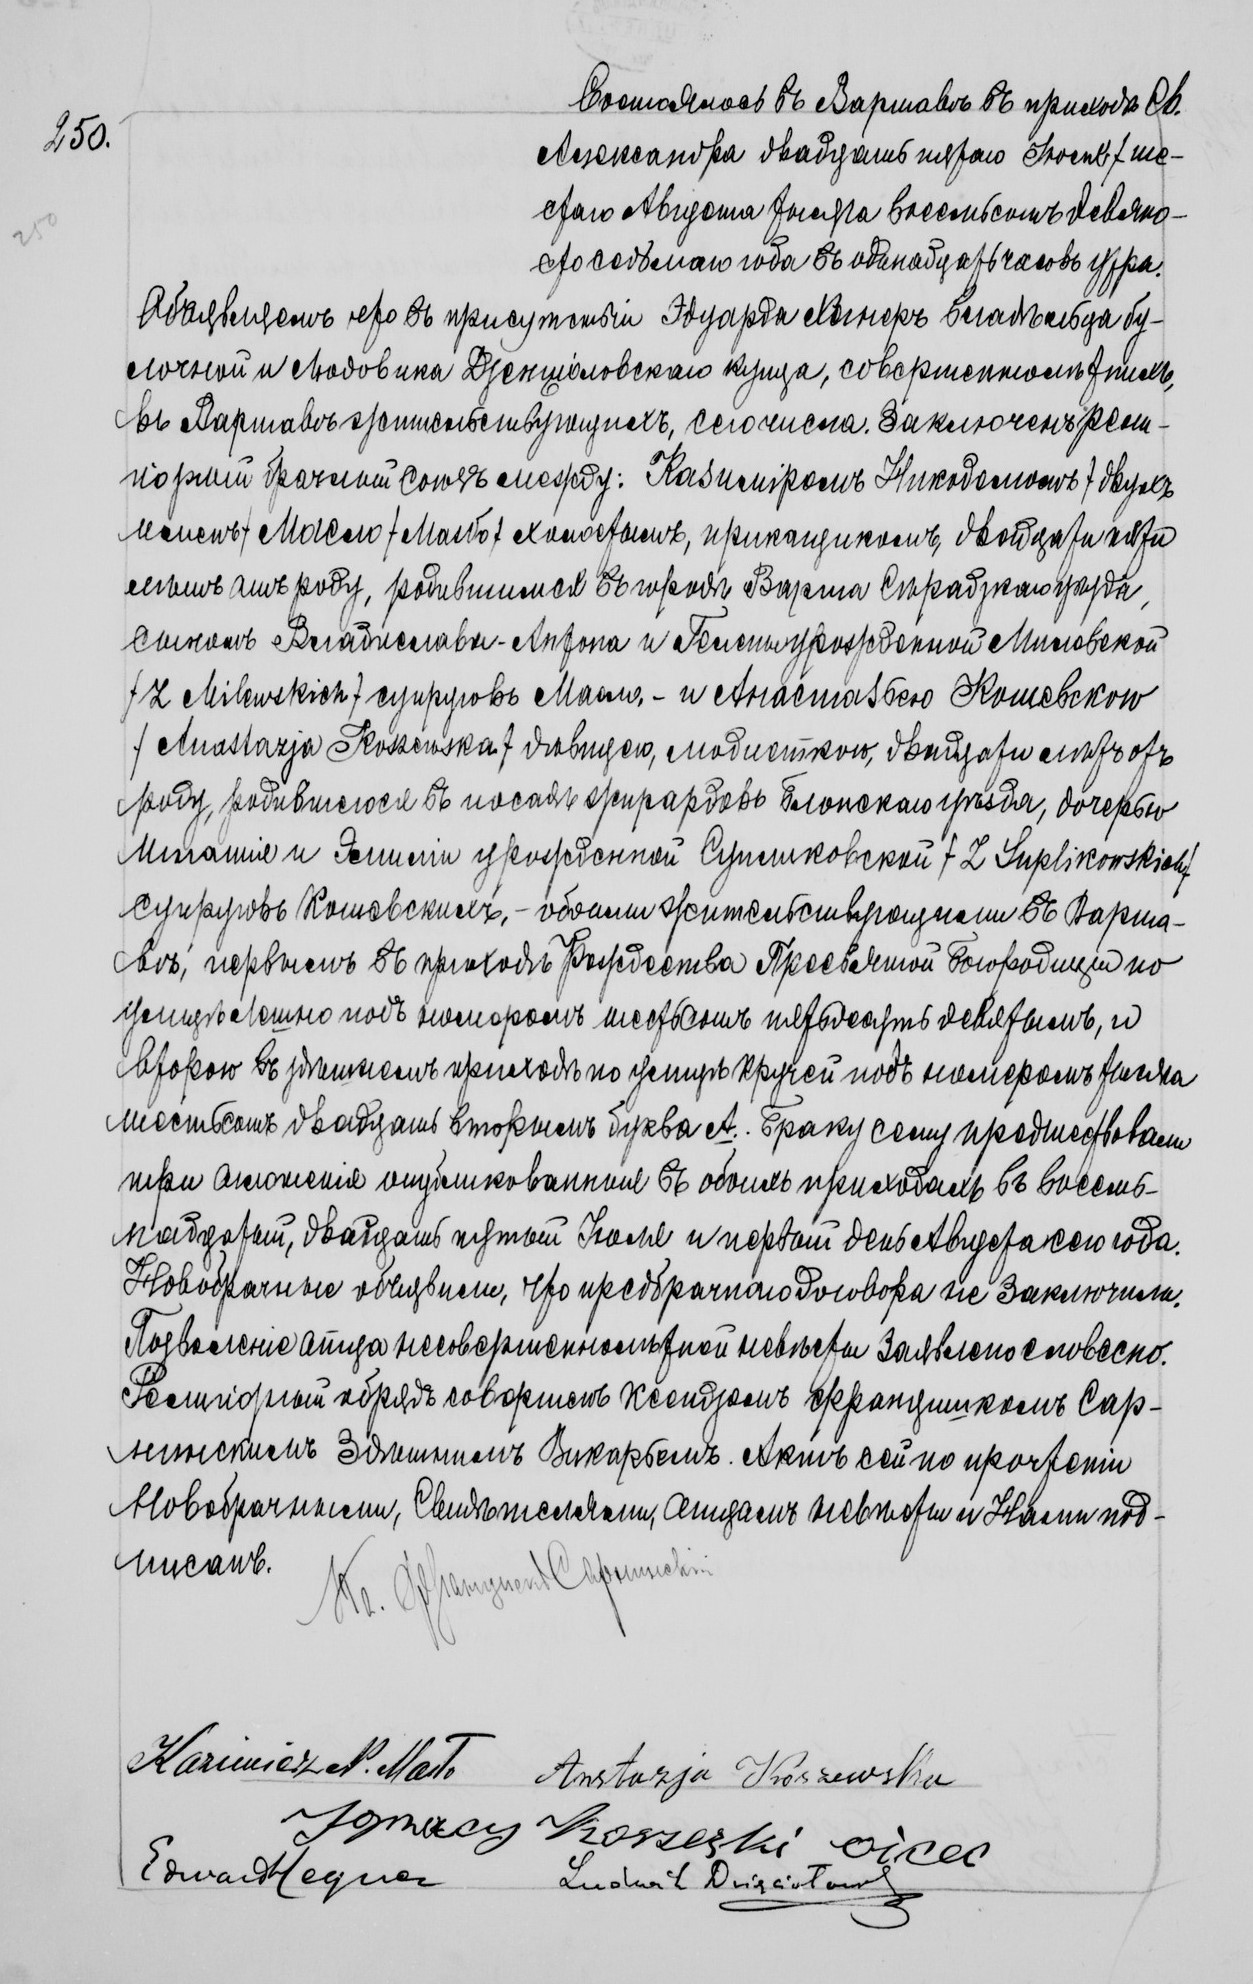 250.
Состоялось въ Варшавѣ въ приходѣ Св.
Александра двадцать пятаго Іюля / ше-
стаго Августа тысяча восемьсотъ девяно-
сто седьмаго года въ одинадцать часовъ утра.
250
Объявляемъ что въ присутствіи Эдуарда Хегнеръ владѣльца бу-
лочной и Людовика Дзенціоловскаго купца, совершеннолѣтнихъ,
въ Варшавѣ жительствующихъ, сего числа заключенъ рели-
гіозный брачный союзъ между: Казиміромъ Никодимомъ / двухъ
именъ / Масло / Masło / холостымъ, прикащикомъ, двадцати пяти
лѣтъ отъ роду, родившимся въ городѣ Варта Сѣрадзкаго уѣзда,
сыномъ Владислава-Антона и Гелены урожденной Милевской
/ Z Milewskich / супруговъ Масло. - и Анастазьею Кошевскою
/ Anastazja Koszewska / дѣвицею, модисткою, двадцати лѣтъ отъ
роду, родившеюся въ посадѣ Жирардовъ Блонскаго уѣзда, дочерью
Игнатія и Эмиліи урожденной Супликовской / Z Suplikowskich /
супруговъ Кошевскихъ, - обоими жительствующими въ Варша-
вѣ, первымъ въ приходѣ Рождества Пресвятой Богородицы по
улицѣ Лешно подъ номеромъ шестьсотъ пятьдесятъ девятымъ, и
второю въ здѣшнемъ приходѣ по улицѣ Кручей подъ номеромъ тысяча
шестьсотъ двадцать вторымъ буква А. Браку сему предшествовали
три оглашенія опубликованныя въ обоихъ приходахъ въ восемь-
надцатый, двадцать пятый Іюля и первый день Августа сего года.
Новобрачные объявили, что предбрачнаго договора не заключили.
Позволеніе отца несовершеннолѣтней невѣсты заявлено словесно.
Религіозный обрядъ совершенъ Ксендзомъ Францишкомъ Сар-
нинскимъ Здѣшнимъ Викарьемъ. Актъ сей по прочтеніи
Новобрачными, Свидѣтелями, отцемъ невѣсты и Нами под-
писанъ.
Кс. Францишекъ
Kazimierz N. Masło Anstazja Koszewska
Ignacy Koszeski oicec
Edward Hegner Ludwik